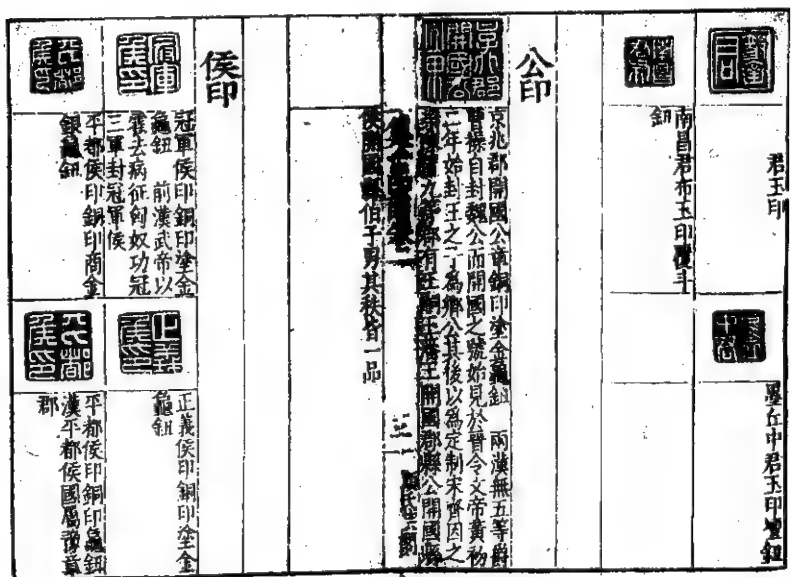 君玉印
南昌君布玉印覆斗
鈕
墨丘中君玉印壇鈕
公印
京兆郡開國公章銅印塗金龜鈕　兩漢無五等爵
曹操自封魏公而開國之號始見於晉令文帝黃初
二年始封王之子為鄉公其後以為定制宋齊因之
九等郡王開國郡縣公開國縣
侯開國伯子男其秩皆一品
三
侯印
冠軍侯印銅印塗金
龜鈕　前漢武帝以
霍去病征匈奴功冠
三軍封冠軍侯
平都侯印銅印商金
銀龜鈕
正義侯印銅印塗金
龜鈕
平都侯印銅印龜鈕
漢平都侯國屬豫章
郡